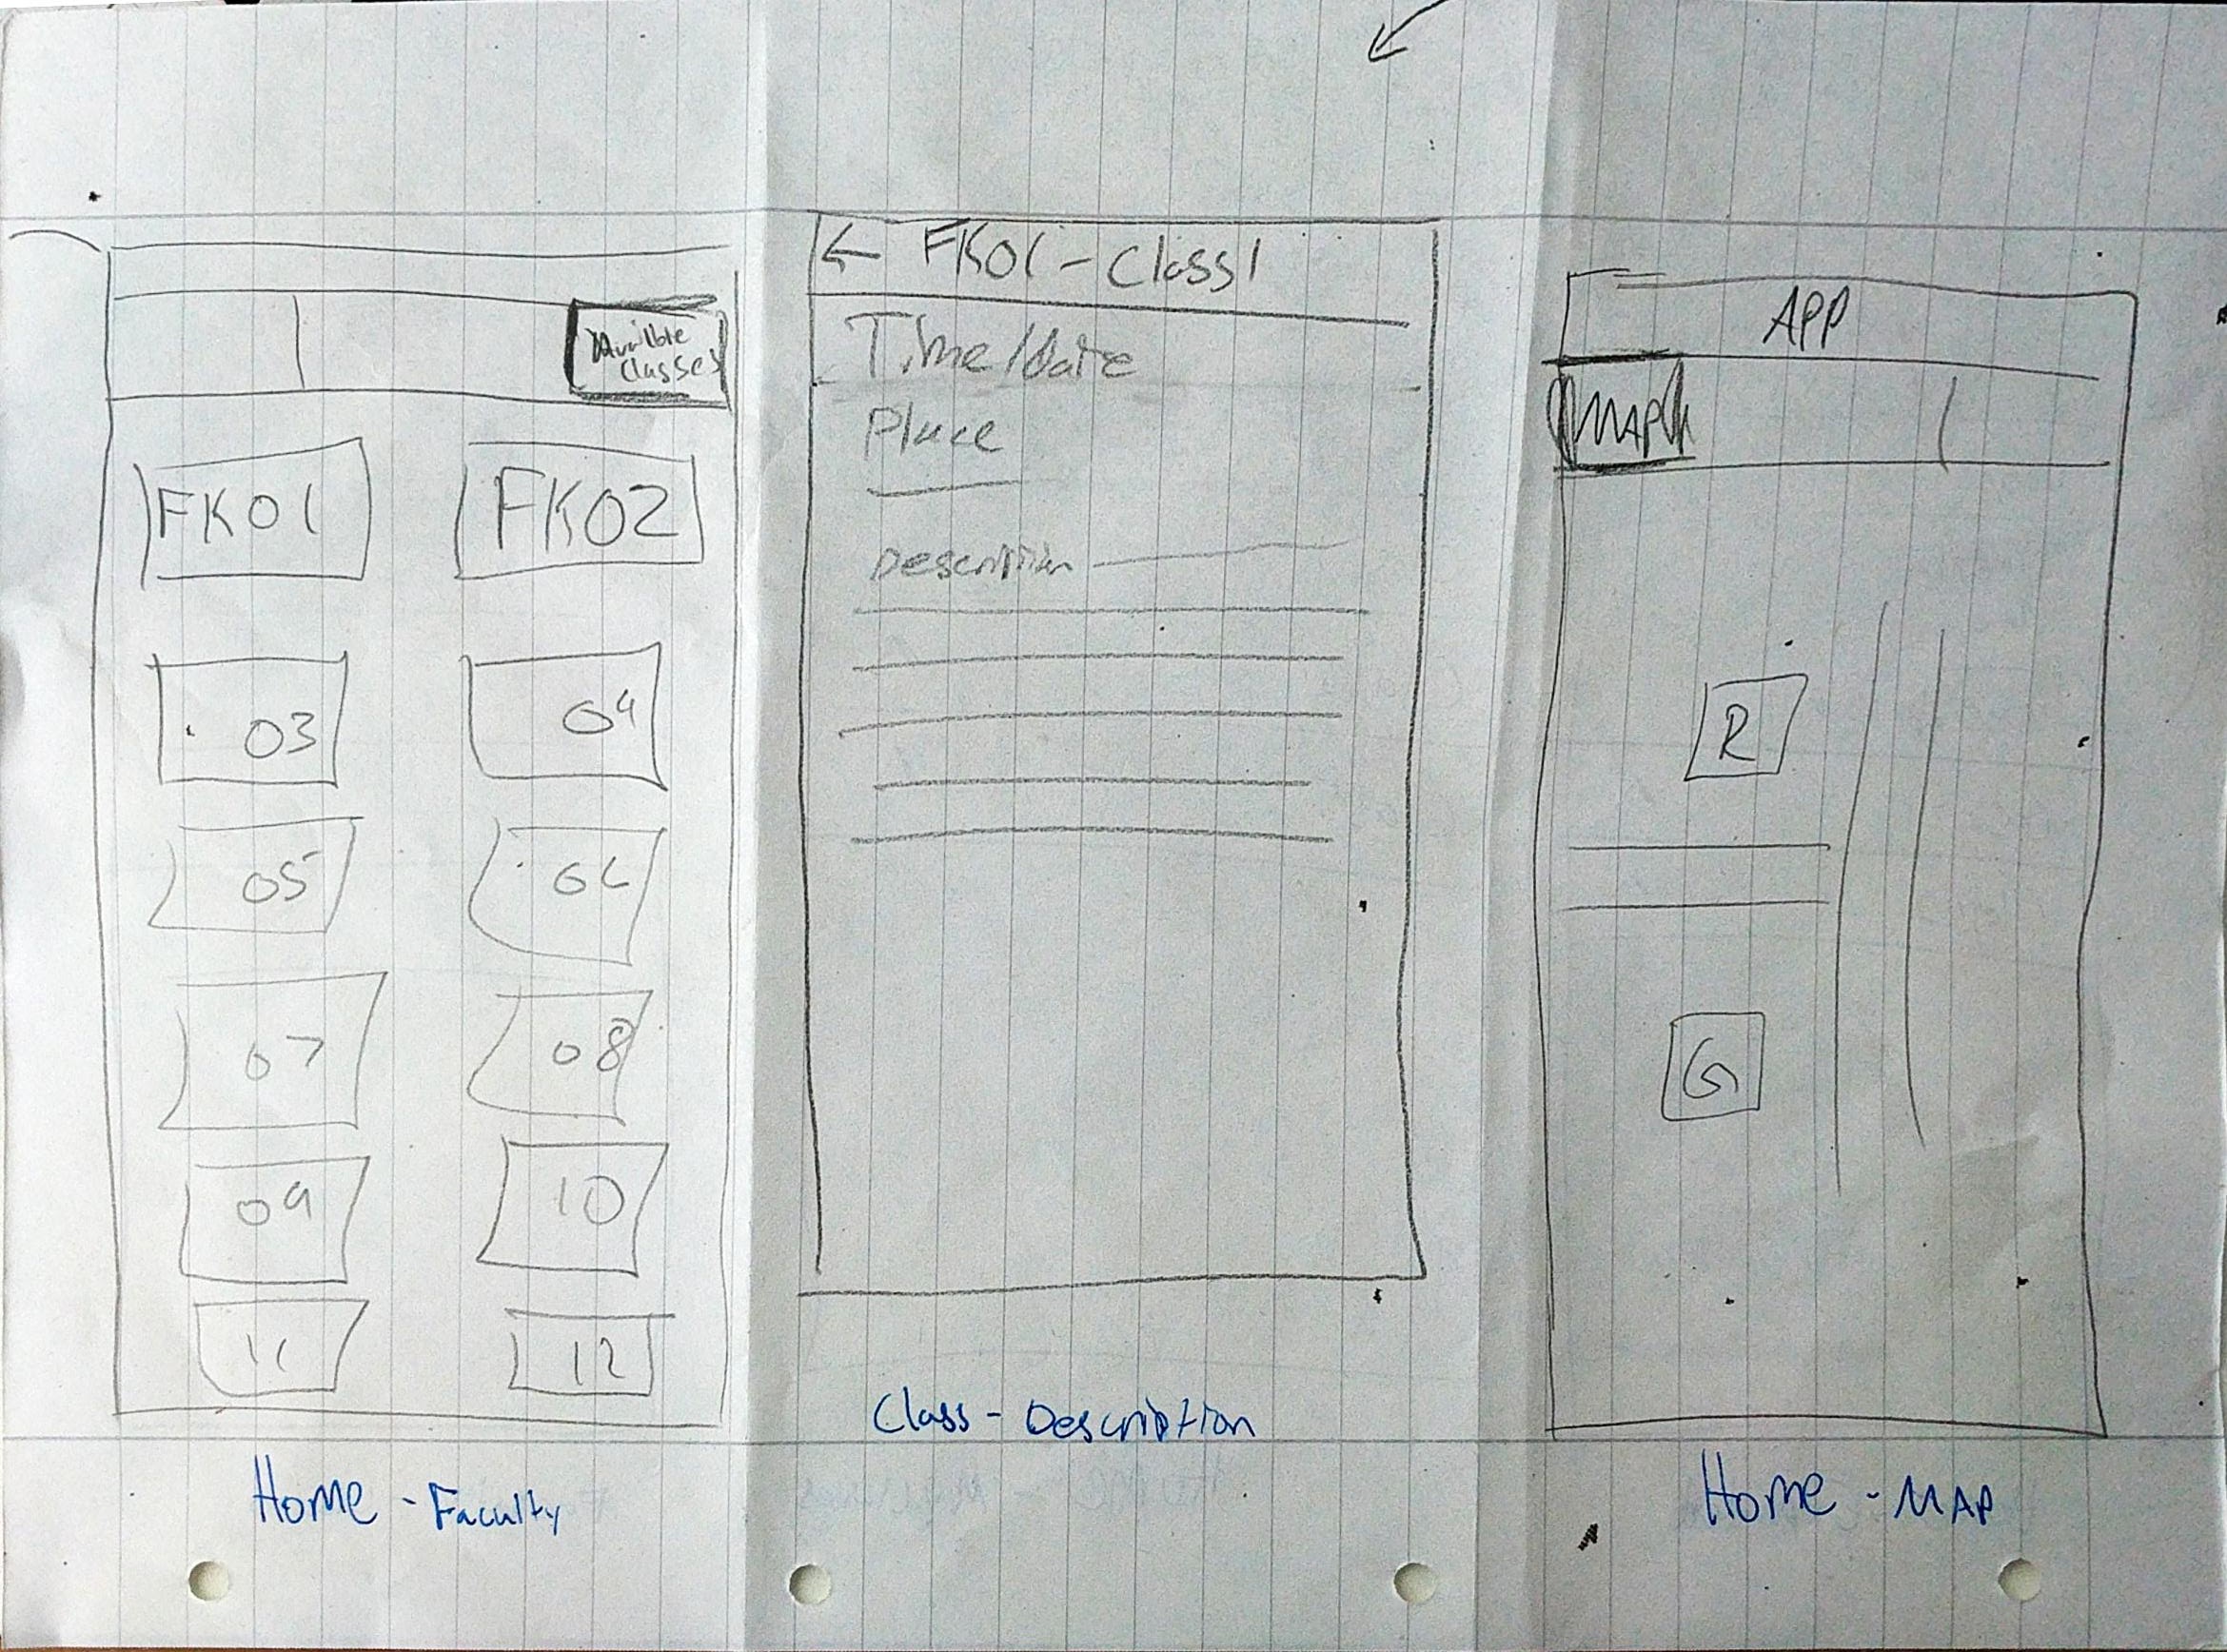 Availble
Classes
FK01
FK02
03
04
05
06
07
08
09
10
11
12
Home - Faculty
← FK01 - Class1
Time/Date
Place
Description
Class - Description
APP
MAP
R
G
Home - MAP